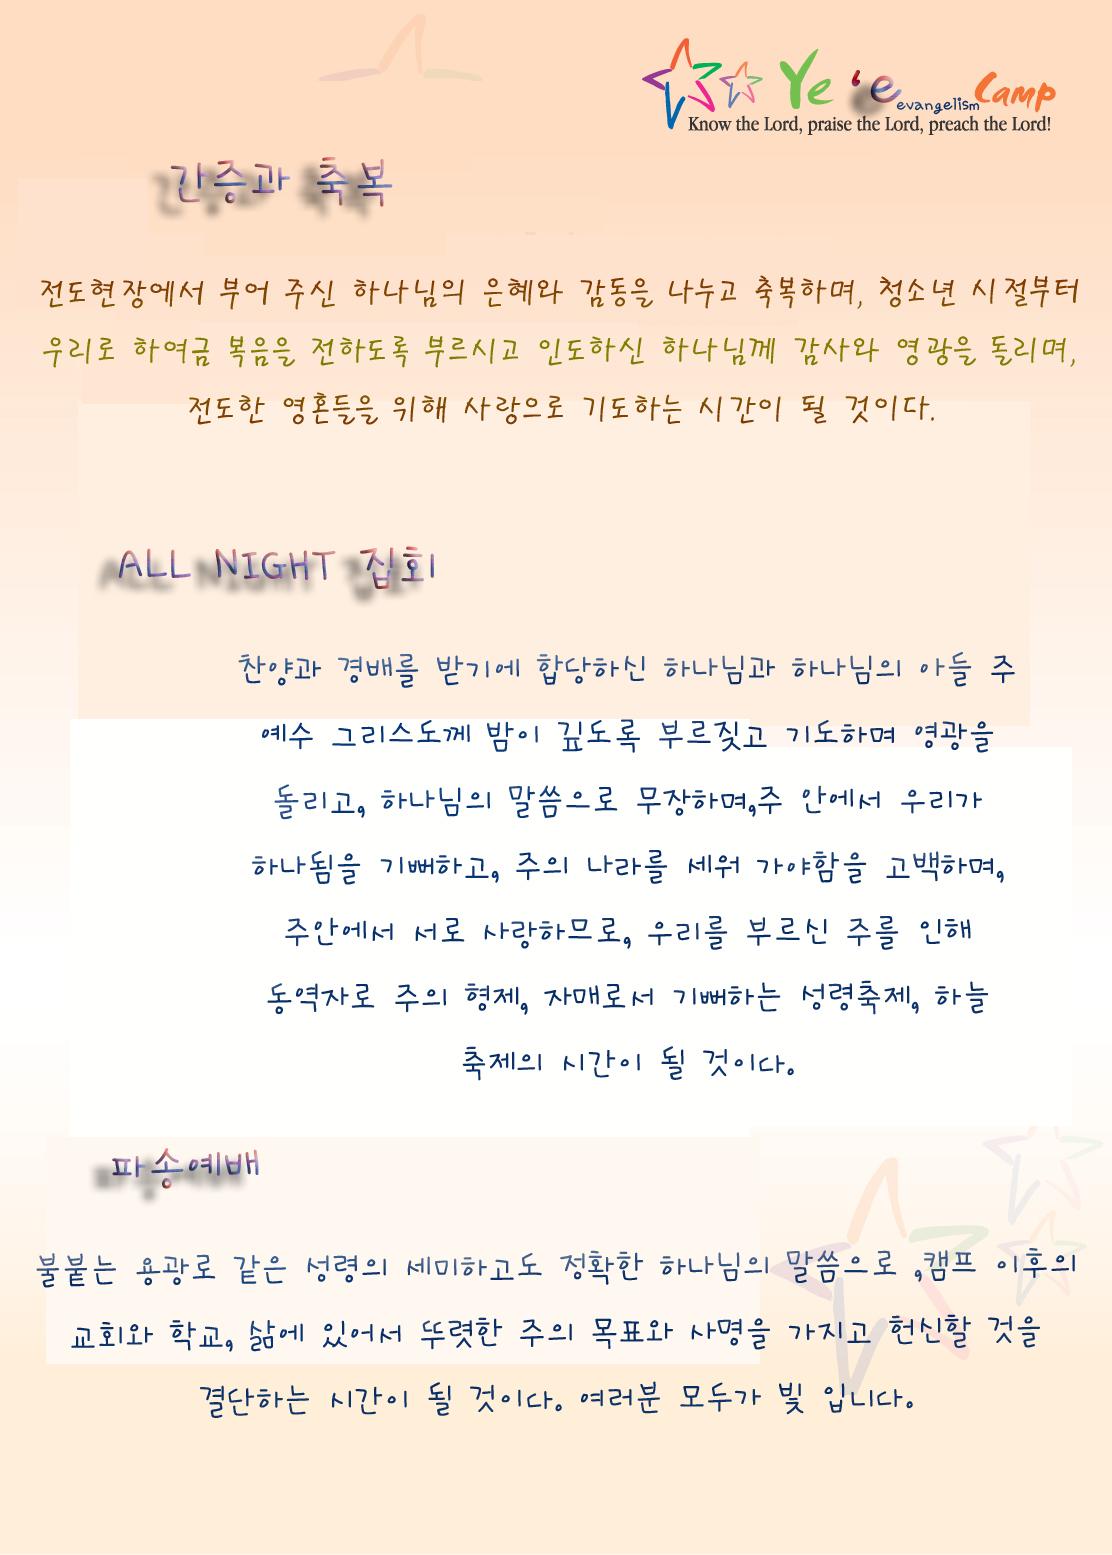 Ye 'e evangelism Camp
Know the Lord, praise the Lord, preach the Lord!
간증과 축복
전도현장에서 부어 주신 하나님의 은혜와 감동을 나누고 축복하며, 청소년 시절부터
우리로 하여금 복음을 전하도록 부르시고 인도하신 하나님께 감사와 영광을 돌리며,
전도한 영혼들을 위해 사랑으로 기도하는 시간이 될 것이다.
ALL NIGHT 집회
찬양과 경배를 받기에 합당하신 하나님과 하나님의 아들 주
예수 그리스도께 밤이 깊도록 부르짖고 기도하며 영광을
돌리고, 하나님의 말씀으로 무장하며,주 안에서 우리가
하나됨을 기뻐하고, 주의 나라를 세워 가야함을 고백하며,
주안에서 서로 사랑하므로, 우리를 부르신 주를 인해
동역자로 주의 형제, 자매로서 기뻐하는 성령축제, 하늘
축제의 시간이 될 것이다.
파송예배
불붙는 용광로 같은 성령의 세미하고도 정확한 하나님의 말씀으로 ,캠프 이후의
교회와 학교, 삶에 있어서 뚜렷한 주의 목표와 사명을 가지고 헌신할 것을
결단하는 시간이 될 것이다. 여러분 모두가 빛 입니다.